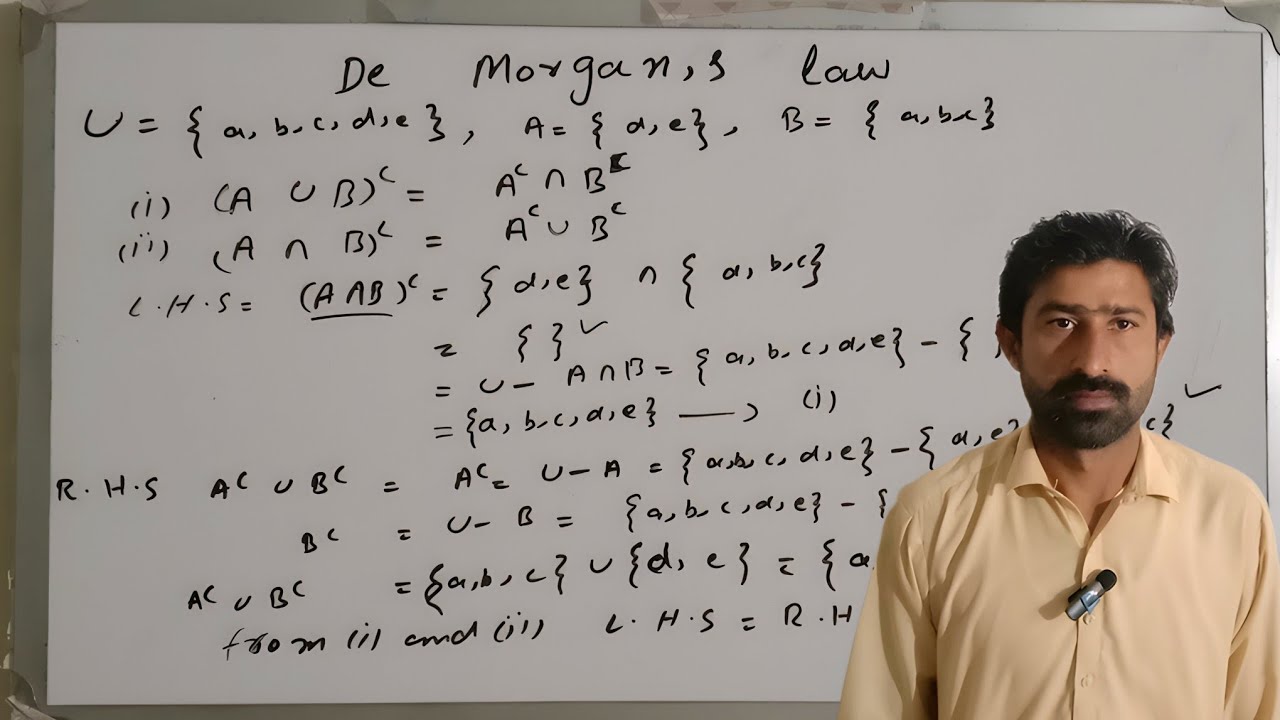 De Morgan,s law
U = { a, b, c, d, e } , A = { d, e } , B = { a, b, c }
(i) (A ∪ B)ᶜ = Aᶜ ∩ Bᶜ
(ii) (A ∩ B)ᶜ = Aᶜ ∪ Bᶜ
L.H.S = (A ∩ B)ᶜ = { d, e } ∩ { a, b, c }
= { } ✓
= U − A ∩ B = { a, b, c, d, e } − { ,
= {a, b, c, d, e } → (i)
R.H.S Aᶜ ∪ Bᶜ = Aᶜ = U − A = {a, b, c, d, e } − { d, e c} ✓
Bᶜ = U − B = {a, b, c, d, e } − {
Aᶜ ∪ Bᶜ = {a, b, c } ∪ {d, e } = { a,
from (i) and (ii) L.H.S = R.H